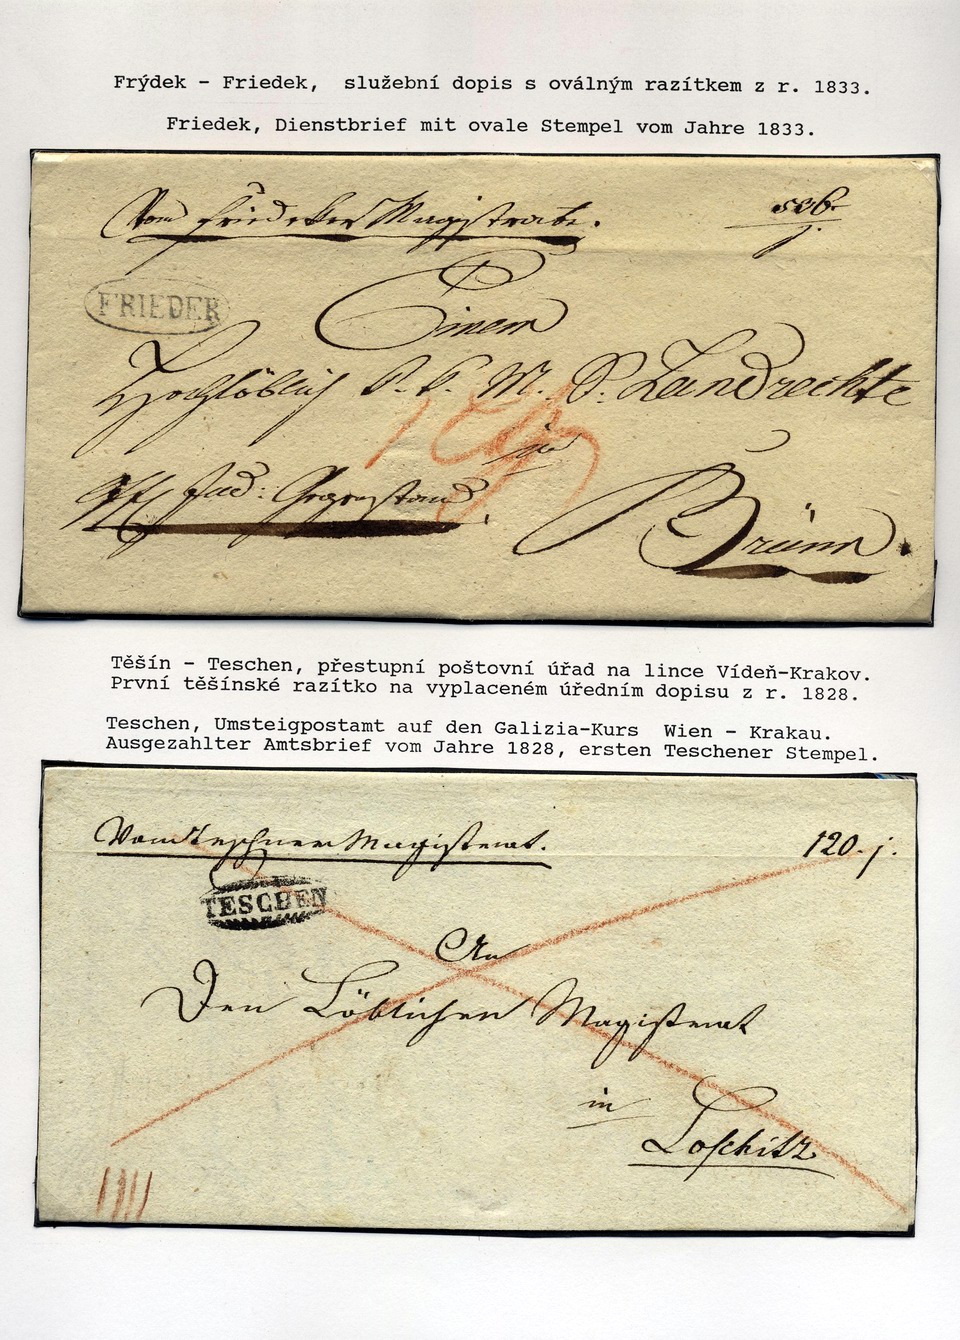 Frýdek - Friedek, služební dopis s oválným razítkem z r. 1833.
Friedek, Dienstbrief mit ovale Stempel vom Jahre 1833.
Vom Friedeker Magistrate.
FRIEDEK
Einem
Hochlöblich K. K. M. S. Landrechte
in
Brünn
Těšín - Teschen, přestupní poštovní úřad na lince Vídeň-Krakov.
První těšínské razítko na vyplaceném úředním dopisu z r. 1828.
Teschen, Umsteigpostamt auf den Galizia-Kurs Wien - Krakau.
Ausgezahlter Amtsbrief vom Jahre 1828, ersten Teschener Stempel.
Vom Teschner Magistrat.
120. j.
TESCHEN
An
Den Löblichen Magistrat
in
Loschitz